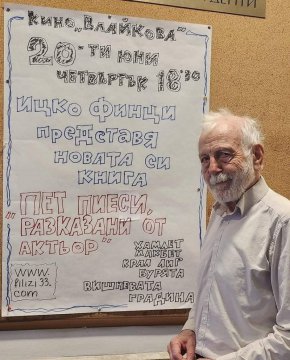 КИНО „ВЛАЙКОВА"
20-ТИ ЮНИ
ЧЕТВЪРТЪК 18:30
ИЦКО ФИНЦИ
ПРЕДСТАВЯ
НОВАТА СИ
КНИГА
„ПЕТ ПИЕСИ,
РАЗКАЗАНИ ОТ
АКТЬОР"
ХАМЛЕТ
МАКБЕТ
КРАЛ ЛИР
БУРЯТА
ВИШНЕВАТА
ГРАДИНА
www.
Pilizi33.
com